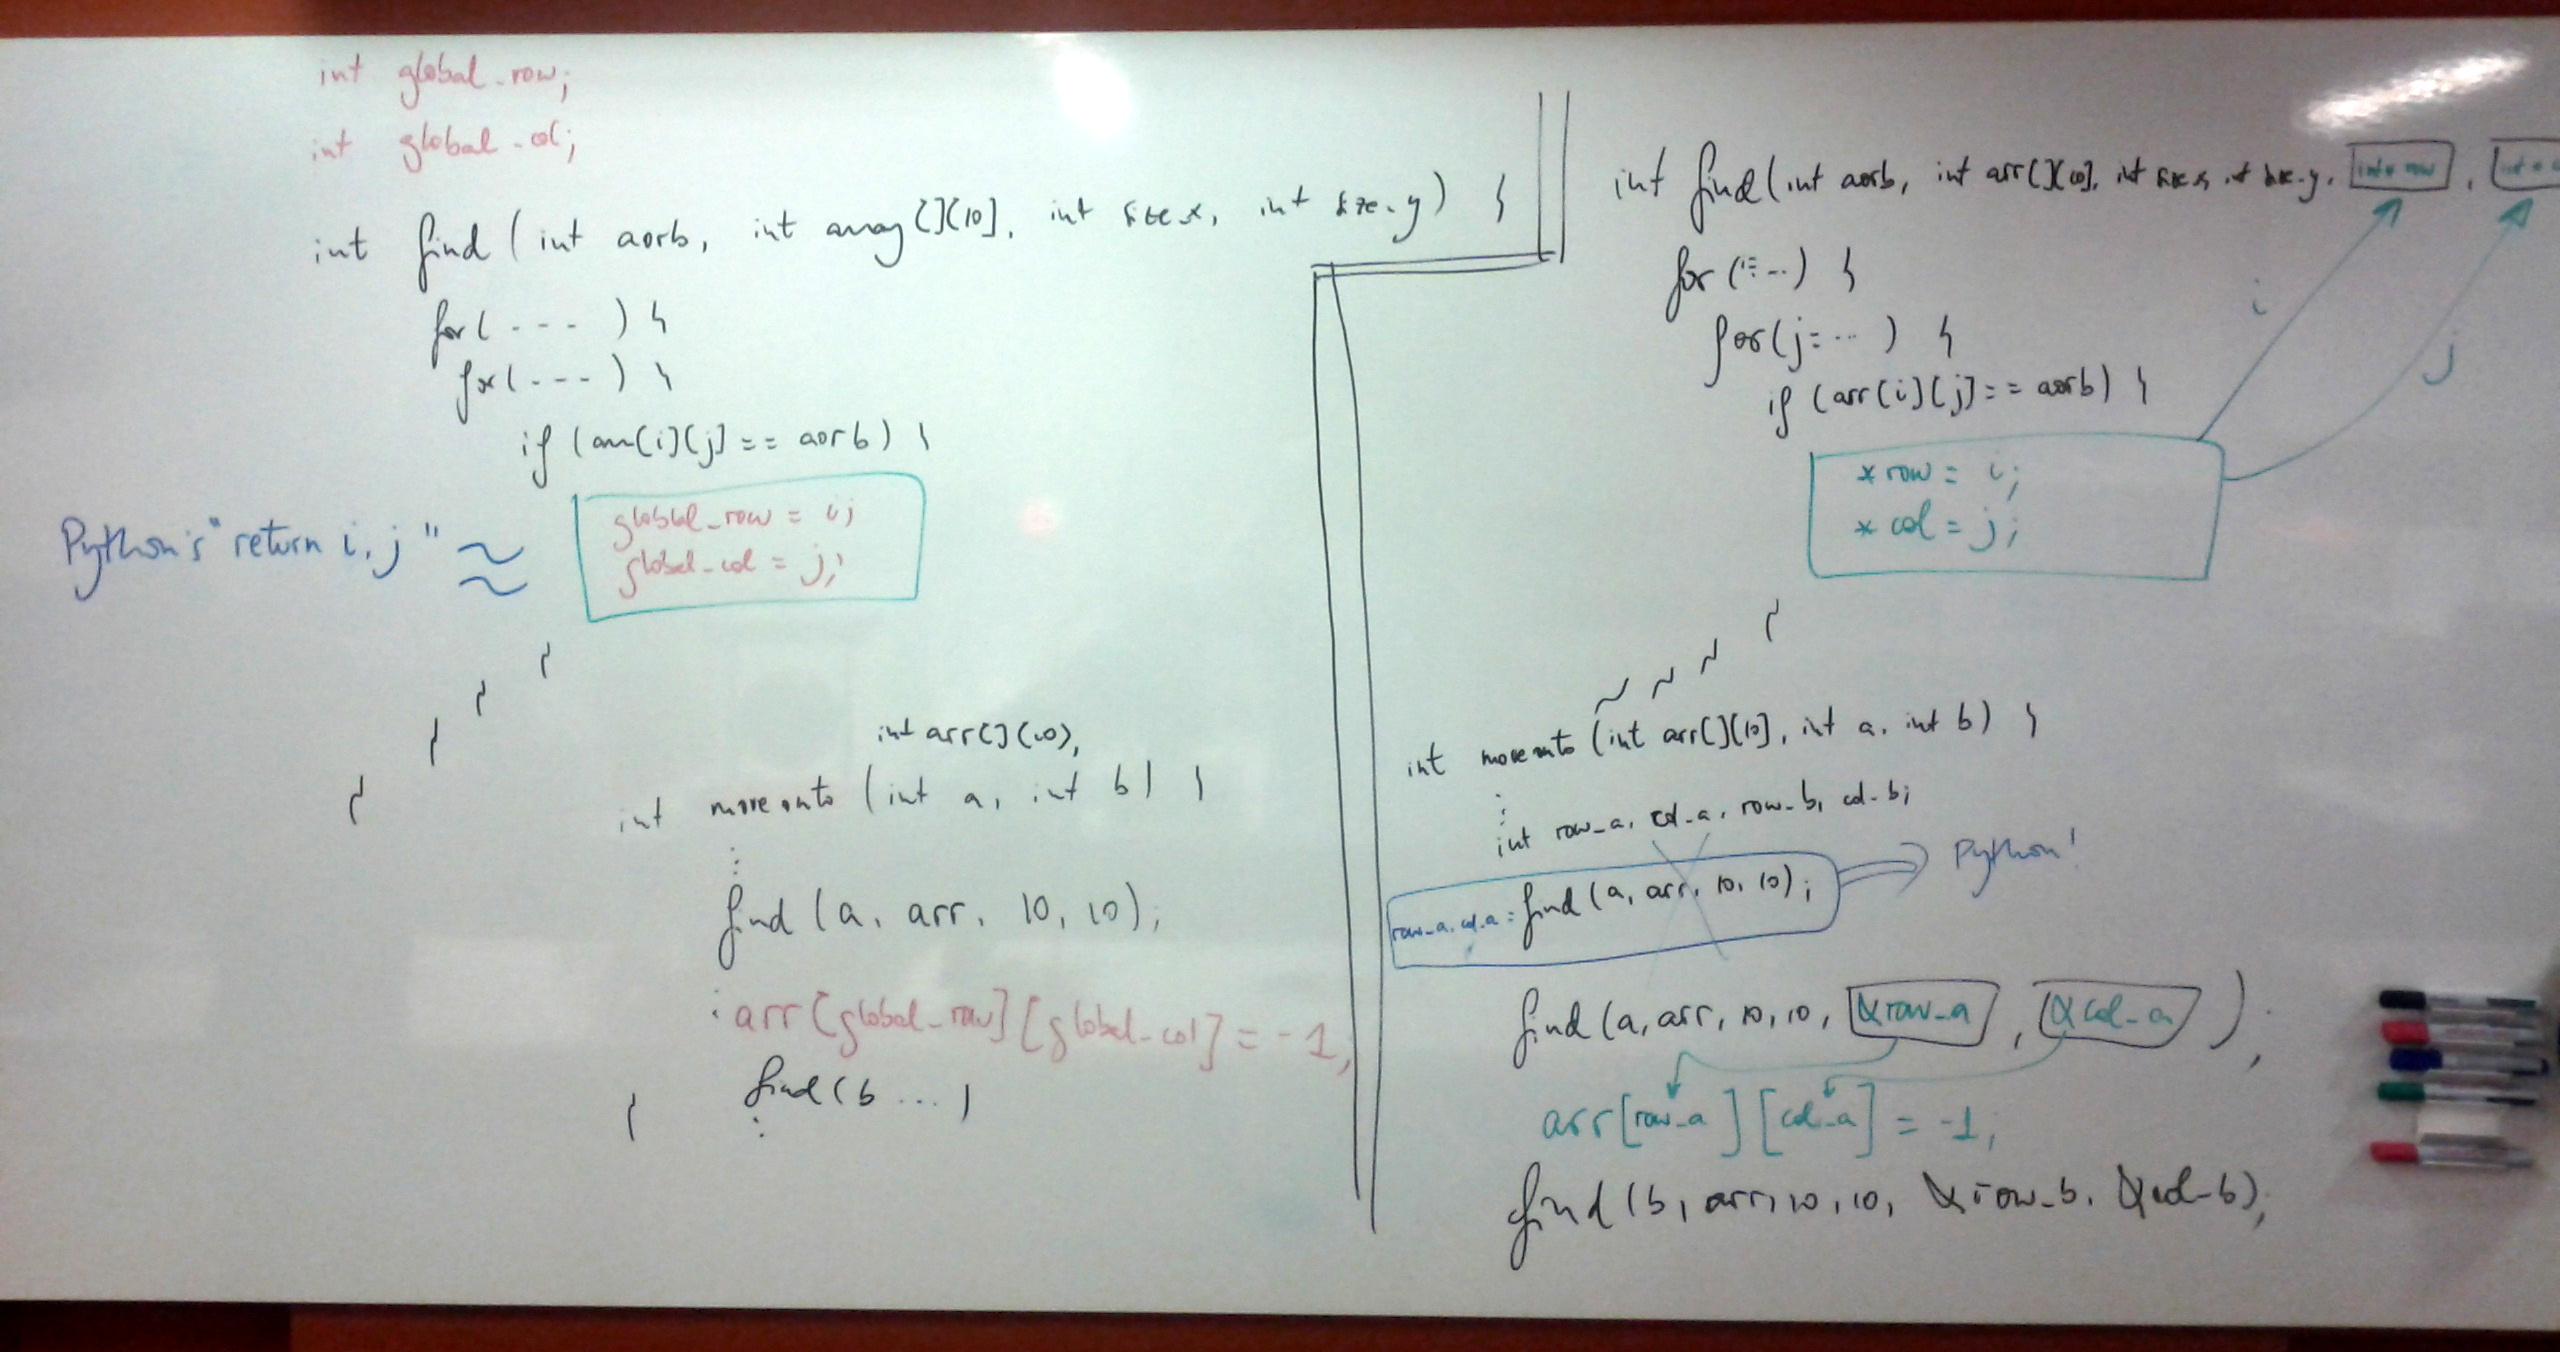 int global_row;
int global_col;
int find (int aorb, int array[][10], int size_x, int size_y) {
for( - - - ) {
for( - - - ) {
if (arr[i][j] == aorb) {
Python's "return i, j" ≈
global_row = i;
global_col = j;
}
}
}
}
int arr[][10],
int moveonto (int a, int b) {
⋮
find (a, arr, 10, 10);
arr[global_row][global_col] = -1;
find(b ...)
⋮
}
int find(int aorb, int arr[][10], int size_x, int size_y, int* row,
for (i= ...) {
for(j= ... ) {
if (arr[i][j] == aorb) {
i
j
* row = i;
* col = j;
}
}
}
}
int moveonto (int arr[][10], int a, int b) {
⋮
int row_a, col_a, row_b, col_b;
row_a, col_a = find (a, arr, 10, 10);
Python!
find (a, arr, 10, 10, &row_a, &col_a);
arr[row_a][col_a] = -1;
find (b, arr, 10, 10, &row_b, &col_b);